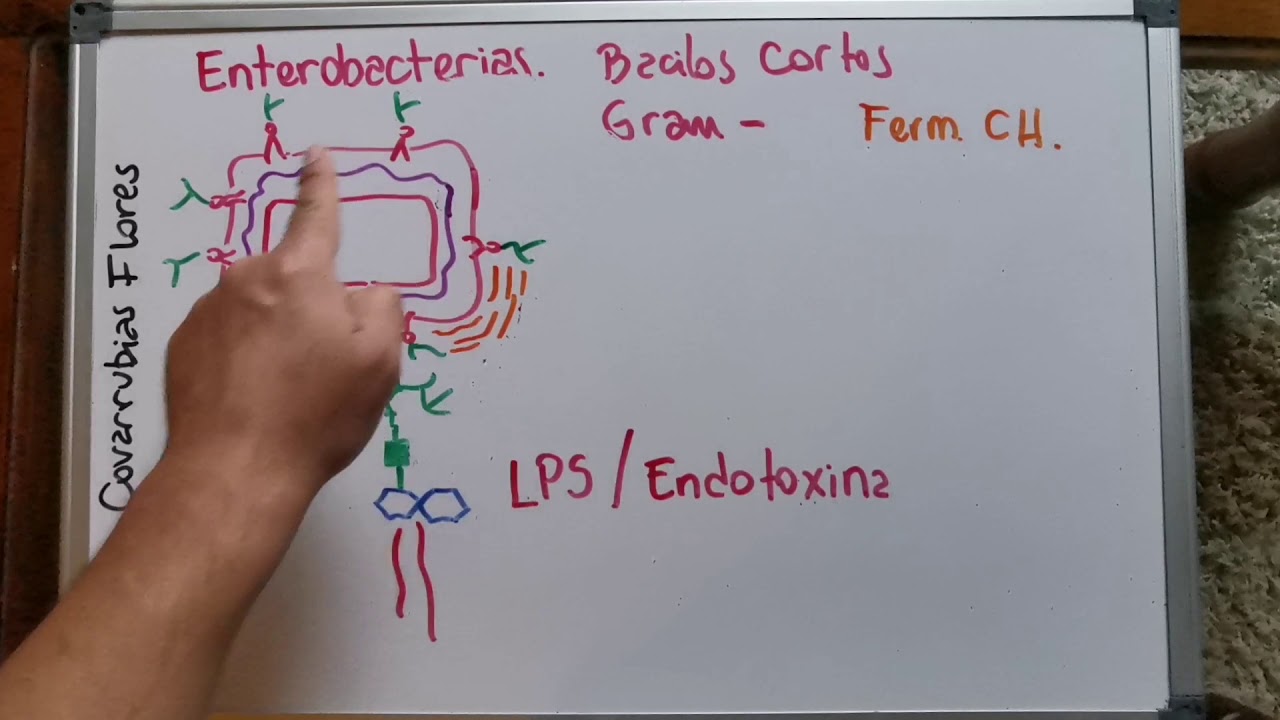 Enterobacterias. Bacilos Cortos
Gram - Ferm. CH.
Covarrubias Flores
LPS / Endotoxina